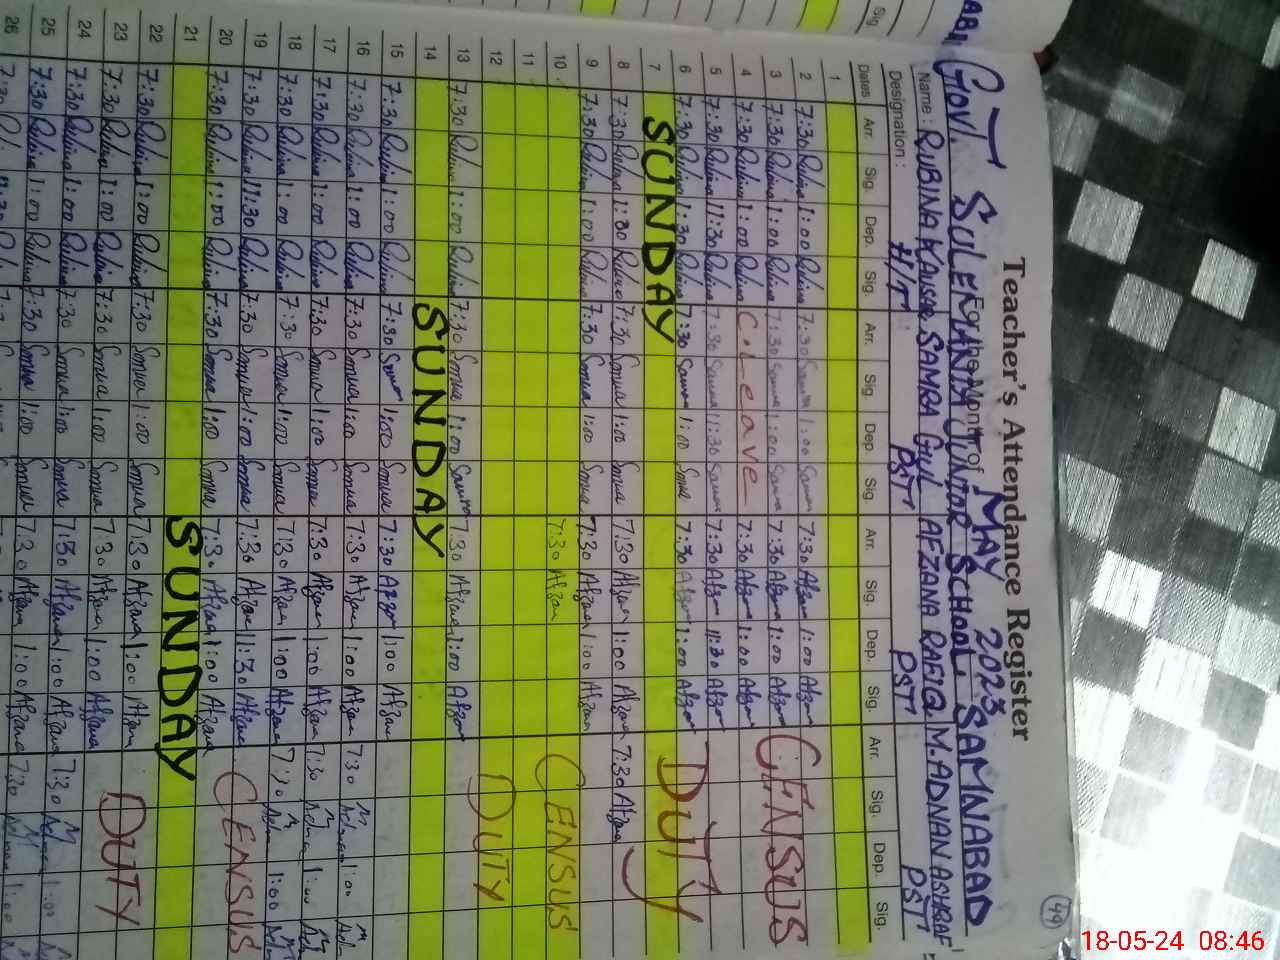 Teacher's Attendance Register
For the Month of MAY 2023
GOVT. SULEMANIA JUNIOR SCHOOL SAMNABAD
Name : RUBINA KAUSAR SAMRA GUL AFZANA RAFIQ M. ADNAN ASHRAF
Designation : H/T PSTT PSTT PSTT
Dates Arr. Sig. Dep. Sig. Arr. Sig. Dep. Sig. Arr. Sig. Dep. Sig. Arr. Sig. Dep. Sig.
1
2 7:30 Rubina 1:00 Rubina 7:30 Samra 1:00 Samra 7:30 Afzana 1:00 Afzana CENSUS
3 7:30 Rubina 1:00 Rubina 7:30 Samra 1:00 Samra 7:30 Afzana 1:00 Afzana
4 7:30 Rubina 1:00 Rubina C. Leave 7:30 Afzana 1:00 Afzana
5 7:30 Rubina 11:30 Rubina 7:30 Samra 11:30 Samra 7:30 Afzana 11:30 Afzana
6 7:30 Rubina 1:30 Rubina 7:30 Samra 1:00 Samra 7:30 Afzana 1:00 Afzana DUTY
7 SUNDAY
8 7:30 Rubina 1:30 Rubina 7:30 Samra 1:00 Samra 7:30 Afzana 1:00 Afzana 7:30 Afzana
9 7:30 Rubina 1:00 Rubina 7:30 Samra 1:00 Samra 7:30 Afzana 1:00 Afzana
10 7:30 Afzana CENSUS
11
12 DUTY
13 7:30 Rubina 1:00 Rubina 7:30 Samra 1:00 Samra 7:30 Afzana 1:00 Afzana
14 SUNDAY
15 7:30 Rubina 1:00 Rubina 7:30 Samra 1:00 Samra 7:30 Afzana 1:00 Afzana
16 7:30 Rubina 1:00 Rubina 7:30 Samra 1:00 Samra 7:30 Afzana 1:00 Afzana 7:30 M Adnan 1:00 M Adnan
17 7:30 Rubina 1:00 Rubina 7:30 Samra 1:00 Samra 7:30 Afzana 1:00 Afzana 7:30 M Adnan 1:00 M Adnan
18 7:30 Rubina 1:00 Rubina 7:30 Samra 1:00 Samra 7:30 Afzana 1:00 Afzana 7:30 M Adnan 1:00 M Adnan
19 7:30 Rubina 11:30 Rubina 7:30 Samra 1:00 Samra 7:30 Afzana 11:30 Afzana
20 7:30 Rubina 1:00 Rubina 7:30 Samra 1:00 Samra 7:30 Afzana 1:00 Afzana CENSUS
21 SUNDAY
22 7:30 Rubina 1:00 Rubina 7:30 Samra 1:00 Samra 7:30 Afzana 1:00 Afzana
23 7:30 Rubina 1:00 Rubina 7:30 Samra 1:00 Samra 7:30 Afzana 1:00 Afzana DUTY
24 7:30 Rubina 1:00 Rubina 7:30 Samra 1:00 Samra 7:30 Afzana 1:00 Afzana
25 7:30 Rubina 1:00 Rubina 7:30 Samra 1:00 Samra 7:30 Afzana 1:00 Afzana 7:30 M Adnan 1:00 M
26 7:30 Afzana 1:00 Afzana 7:30 M Adnan 1:00 M
49
Sig.
18-05-24 08:46